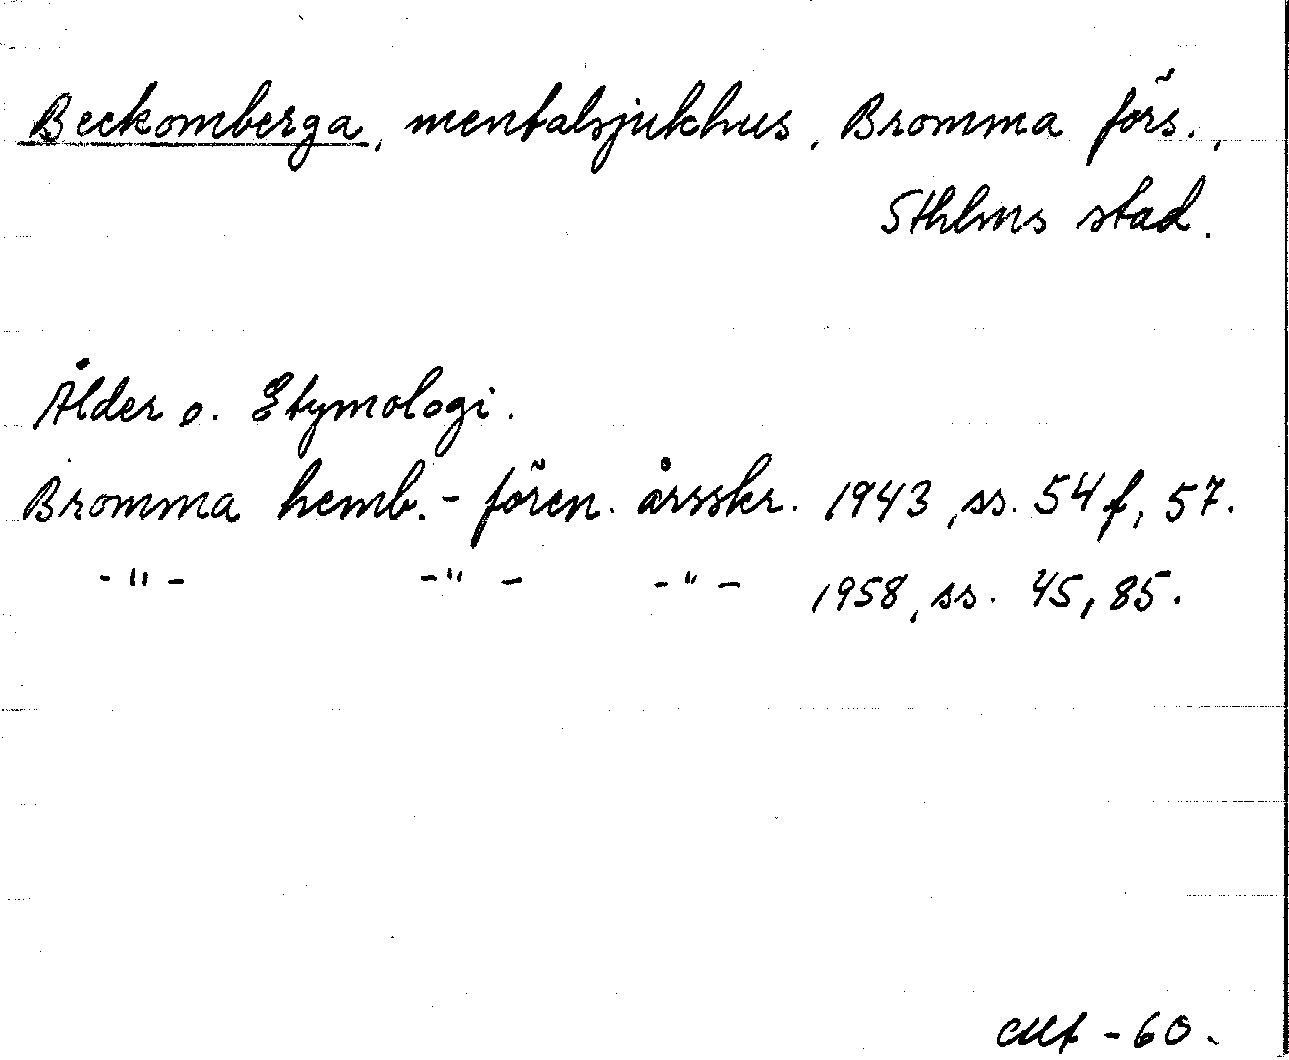 Beckomberga, mentalsjukhus, Bromma förs.,
Sthlms stad.
Ålder o. Etymologi.
Bromma hemb.- fören. årsskr. 1943, ss. 54 f, 57.
-"- -"- -"- 1958, ss. 45, 85.
-60.